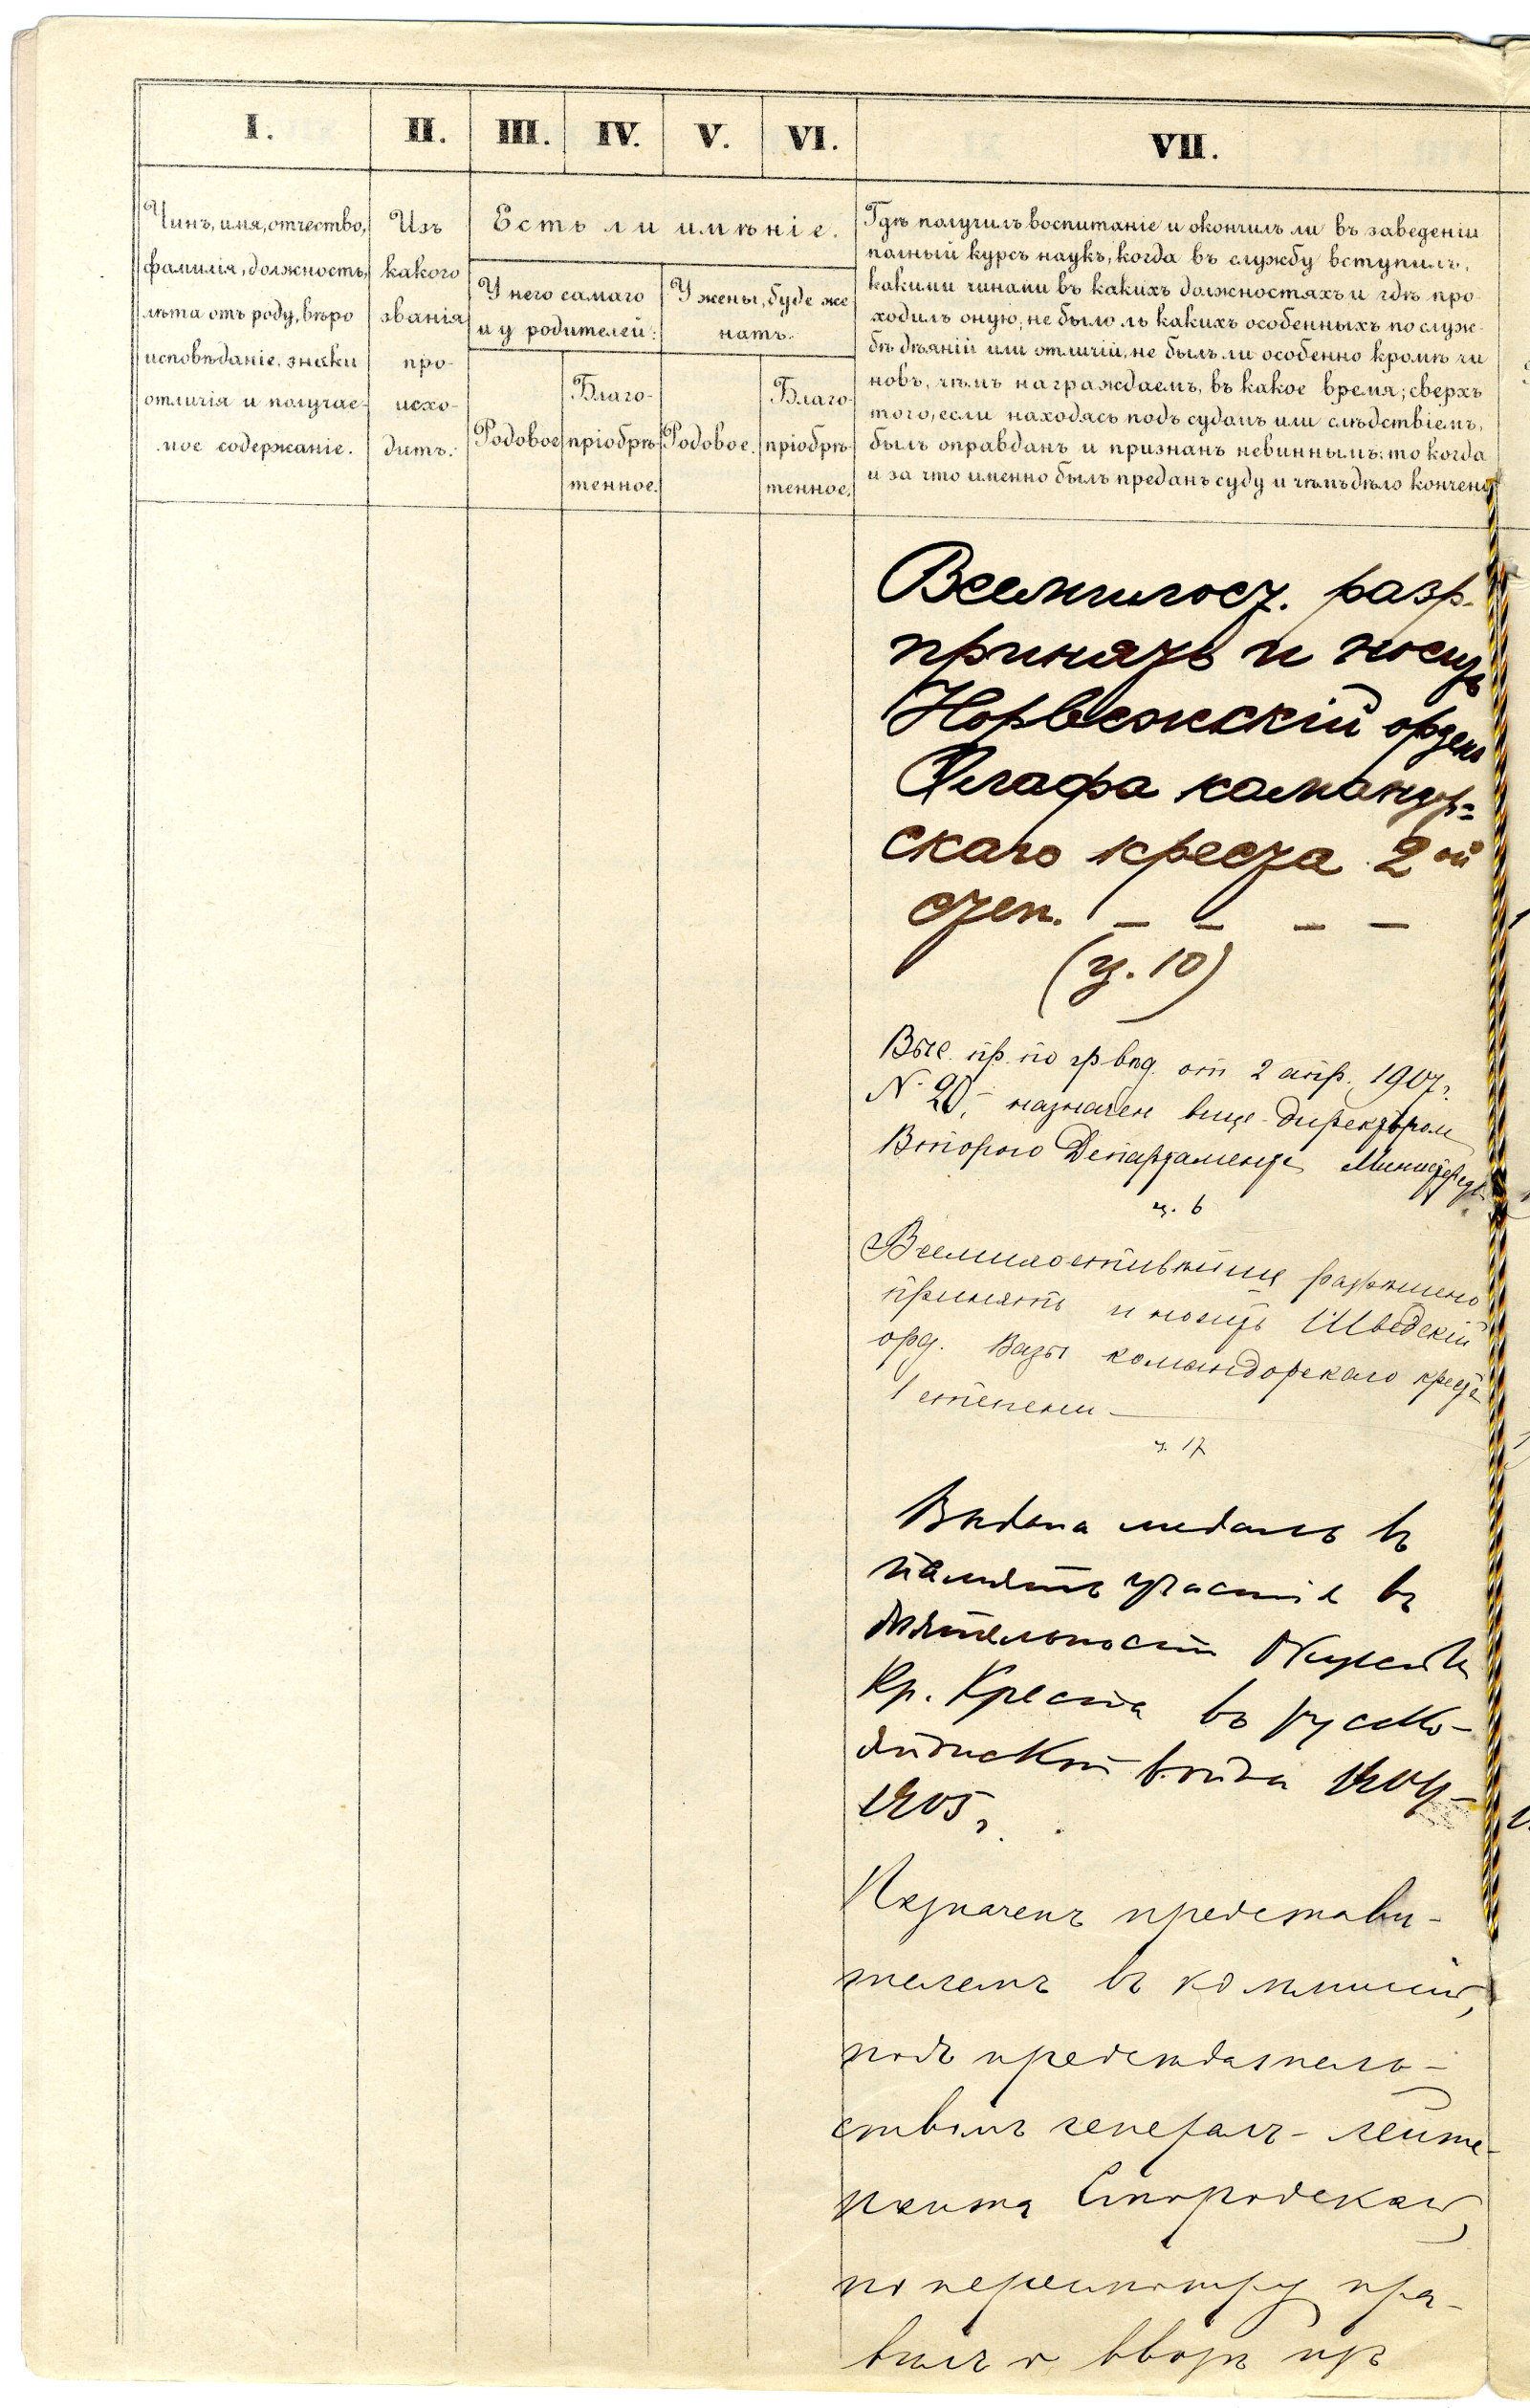 I.
II.
III.
IV.
V.
VI.
VII.
Чинъ, имя, отчество,
фамилія, должность,
лѣта отъ роду, вѣро
исповѣданіе, знаки
отличія и получае-
мое содержаніе.
Изъ
какого
званія
про-
исхо-
дитъ.
Есть ли имѣніе.
У него самаго
и у родителей:
У жены, буде же
натъ.
Родовое
Благо-
пріобрѣ-
тенное.
Родовое.
Благо-
пріобрѣ-
тенное.
Гдѣ получилъ воспитаніе и окончилъ ли въ заведеніи
полный курсъ наукъ, когда въ службу вступилъ,
какими чинами въ какихъ должностяхъ и гдѣ про-
ходилъ оную, не было ль какихъ особенныхъ по служ-
бѣ дѣяній или отличій, не былъ ли особенно кромѣ чи
новъ, чѣмъ награждаемъ, въ какое время; сверхъ
того, если находясь подъ судомъ или слѣдствіемъ,
былъ оправданъ и признанъ невиннымъ: то когда
и за что именно былъ преданъ суду и чѣмъ дѣло кончено
Всемилост. разр.
принять и носить
Норвежскій орденъ
Олафа командор=
скаго креста 2ой
степ. – – – –
(ц. 10)
Выс. пр. по гр вѣд. от 2 апр. 1907 г.
N. 20, – назначен вице-директором
Второго Департамента Министерства
ц. 6
Всемилостивѣйше разрѣшено
принять и носить Шведскій
орд. Вазы командорскаго креста
1 степени —
ц. 17
Выдана медаль въ
память участія въ
дѣятельности Общества
Кр. Креста въ русско-
японской войнѣ 1904-
1905 г.
Назначенъ представи-
телемъ въ коммисію,
подъ предсѣдатель-
ствомъ генералъ-лейте-
нанта
по пересмотру пра-
вилъ о ввозѣ изъ